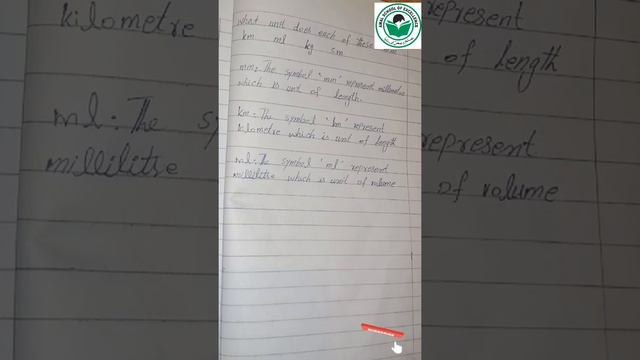 What unit does each of these
km ml kg cm
mm: The symbol 'mm' represent millimetre
which is unit of length.
km: The symbol 'km' represent
kilometre which is unit of length
ml: The symbol 'ml' represent
millilitre which is unit of volume
AMAL SCHOOL OF EXCELLENCE
kilometre
ml: The sy
millilitre
represent
of length
represent
of volume